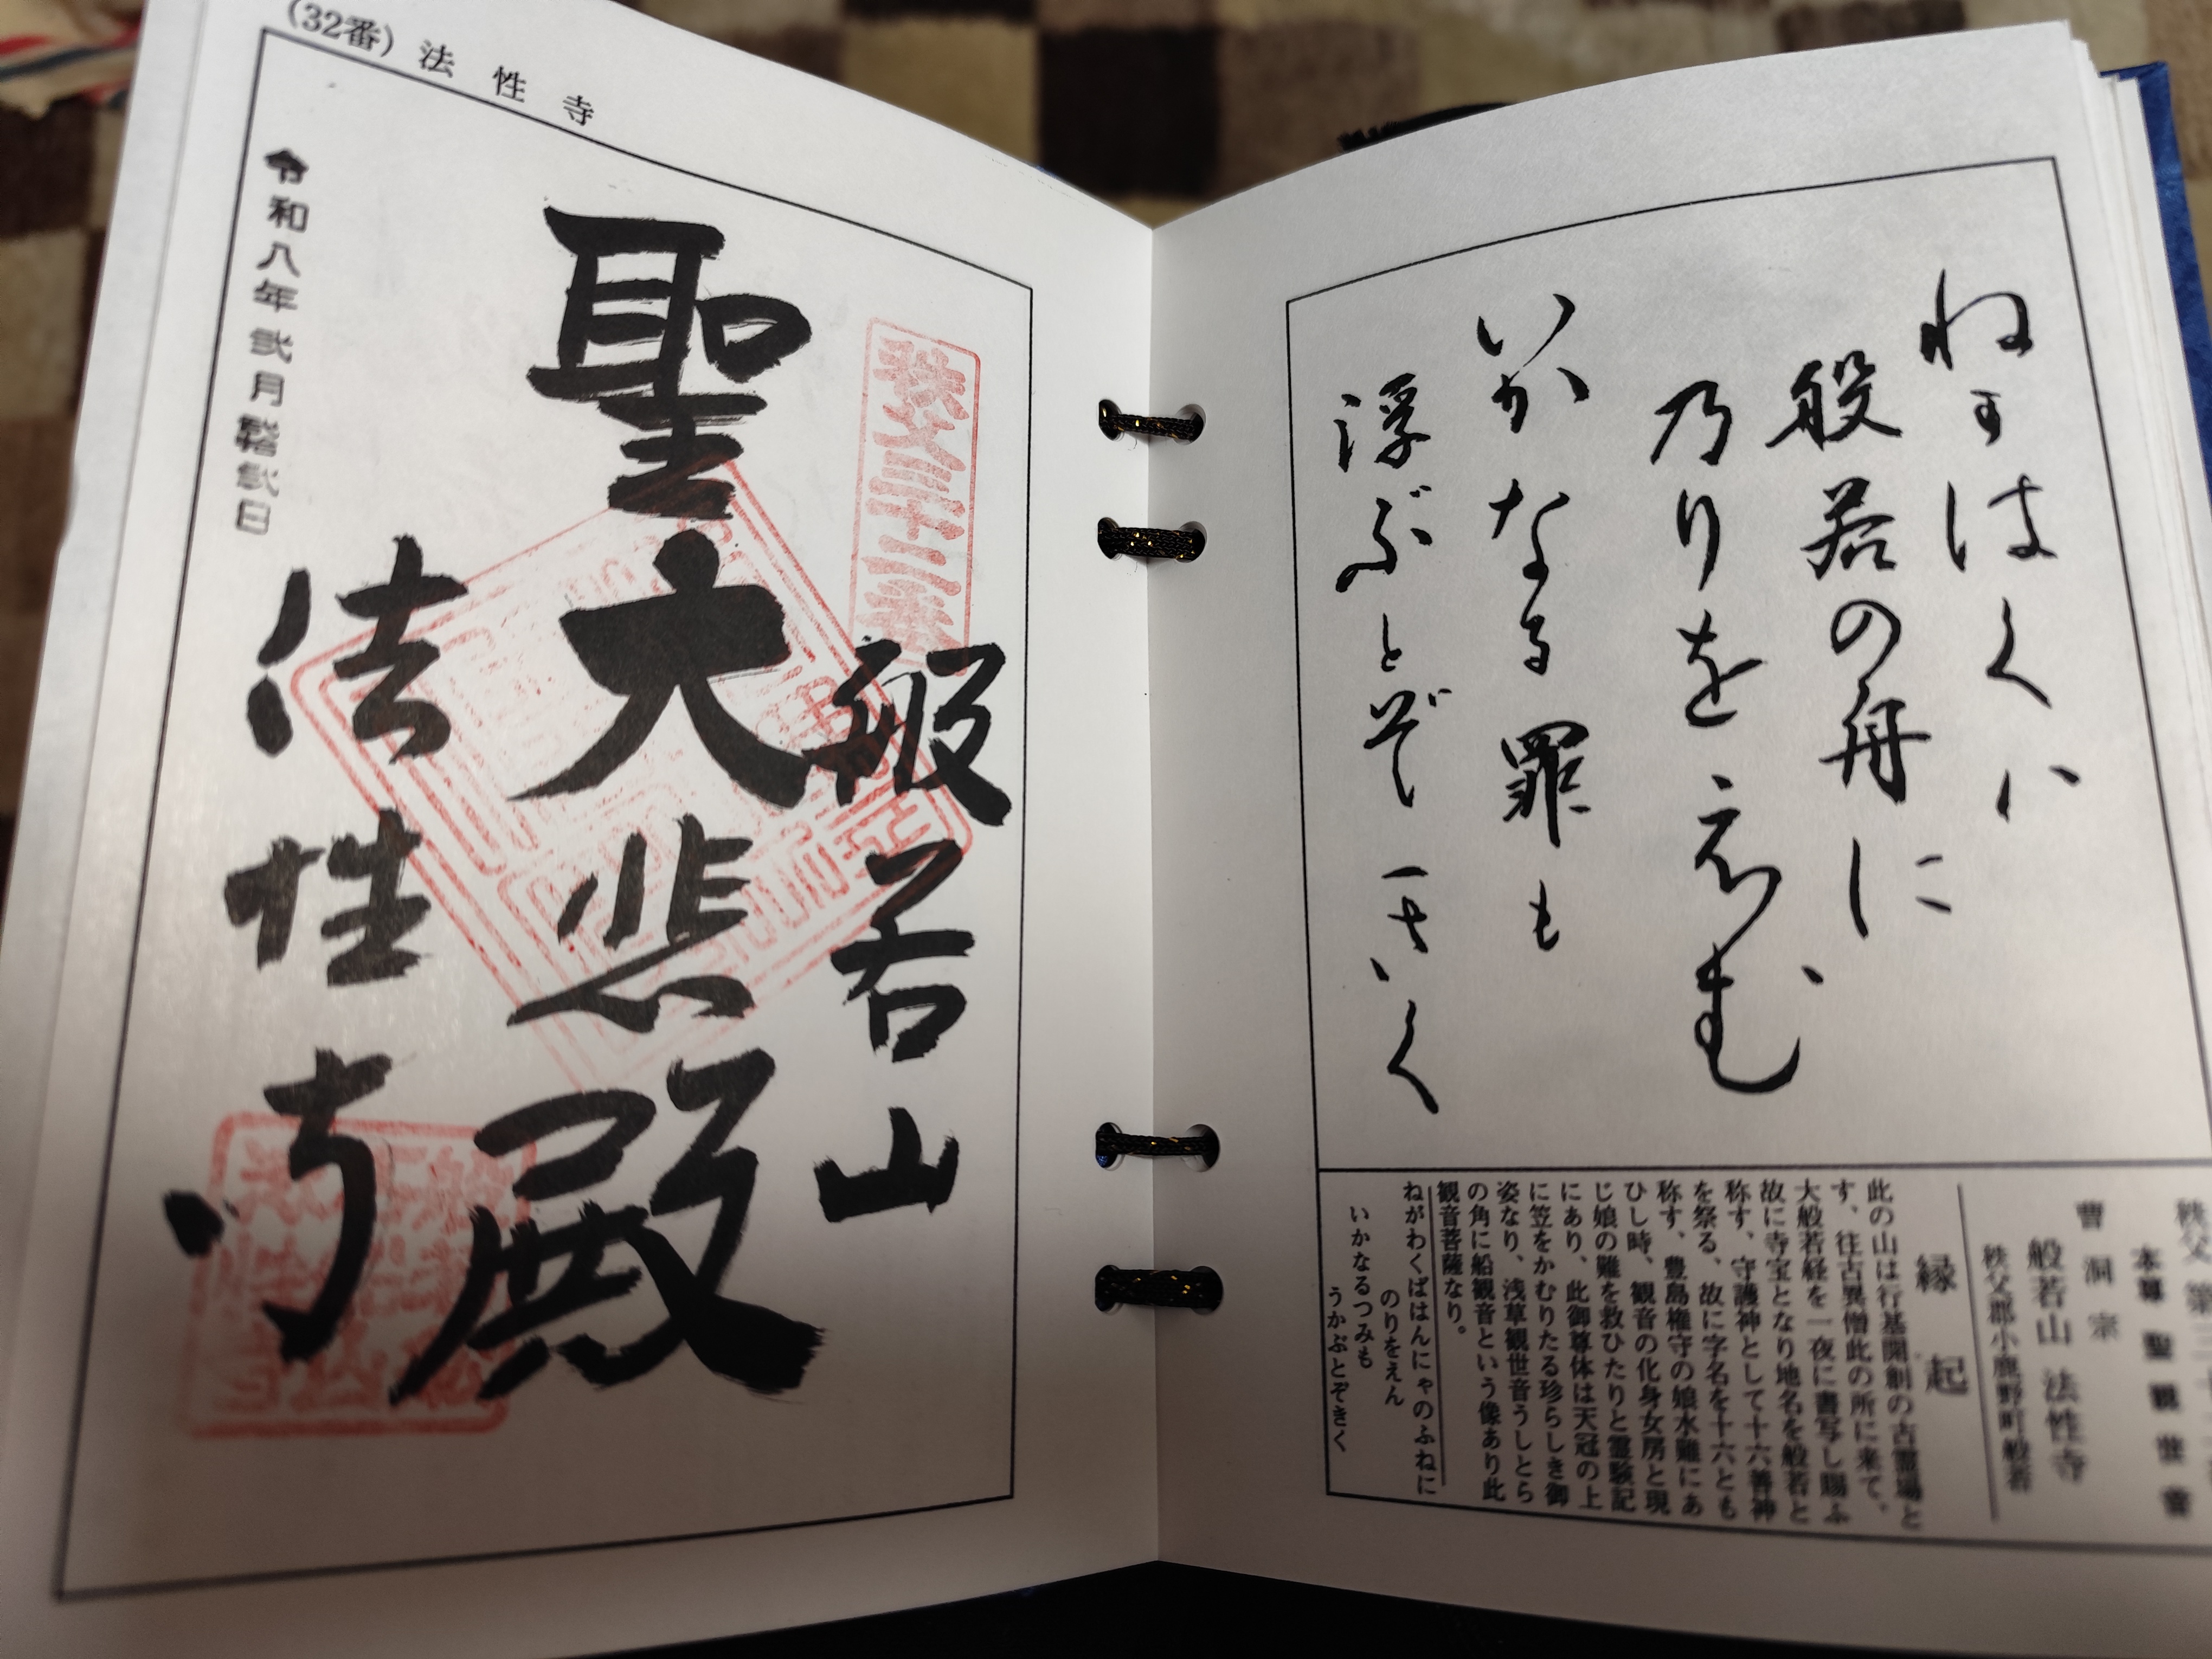 ねがはくハ
般若の舟に
乃りをえむ
いかなる罪も
浮ぶとぞきく
本尊 聖観世音
曹洞宗
般若山 法性寺
秩父郡小鹿野町般若
縁起
此の山は行基開創の古霊場と
す、往古異僧此の所に来て、
大般若経を一夜に書写し賜ふ
故に寺宝となり地名を般若と
称す、守護神として十六善神
を祭る、故に字名を十六とも
称す、豊島権守の娘水難にあ
ひし時、観音の化身女房と現
じ娘の難を救ひたりと霊験記
にあり、此御尊体は天冠の上
に笠をかむりたる珍らしき御
姿なり、浅草観世音うしとら
の角に船観音という像あり此
観音菩薩なり。
ねがわくばはんにゃのふねに
のりをえん
いかなるつみも
うかぶとぞきく
(32番) 法性寺
秩父三十二番
般若山
聖大悲殿
法性寺
令和八年弐月弐日